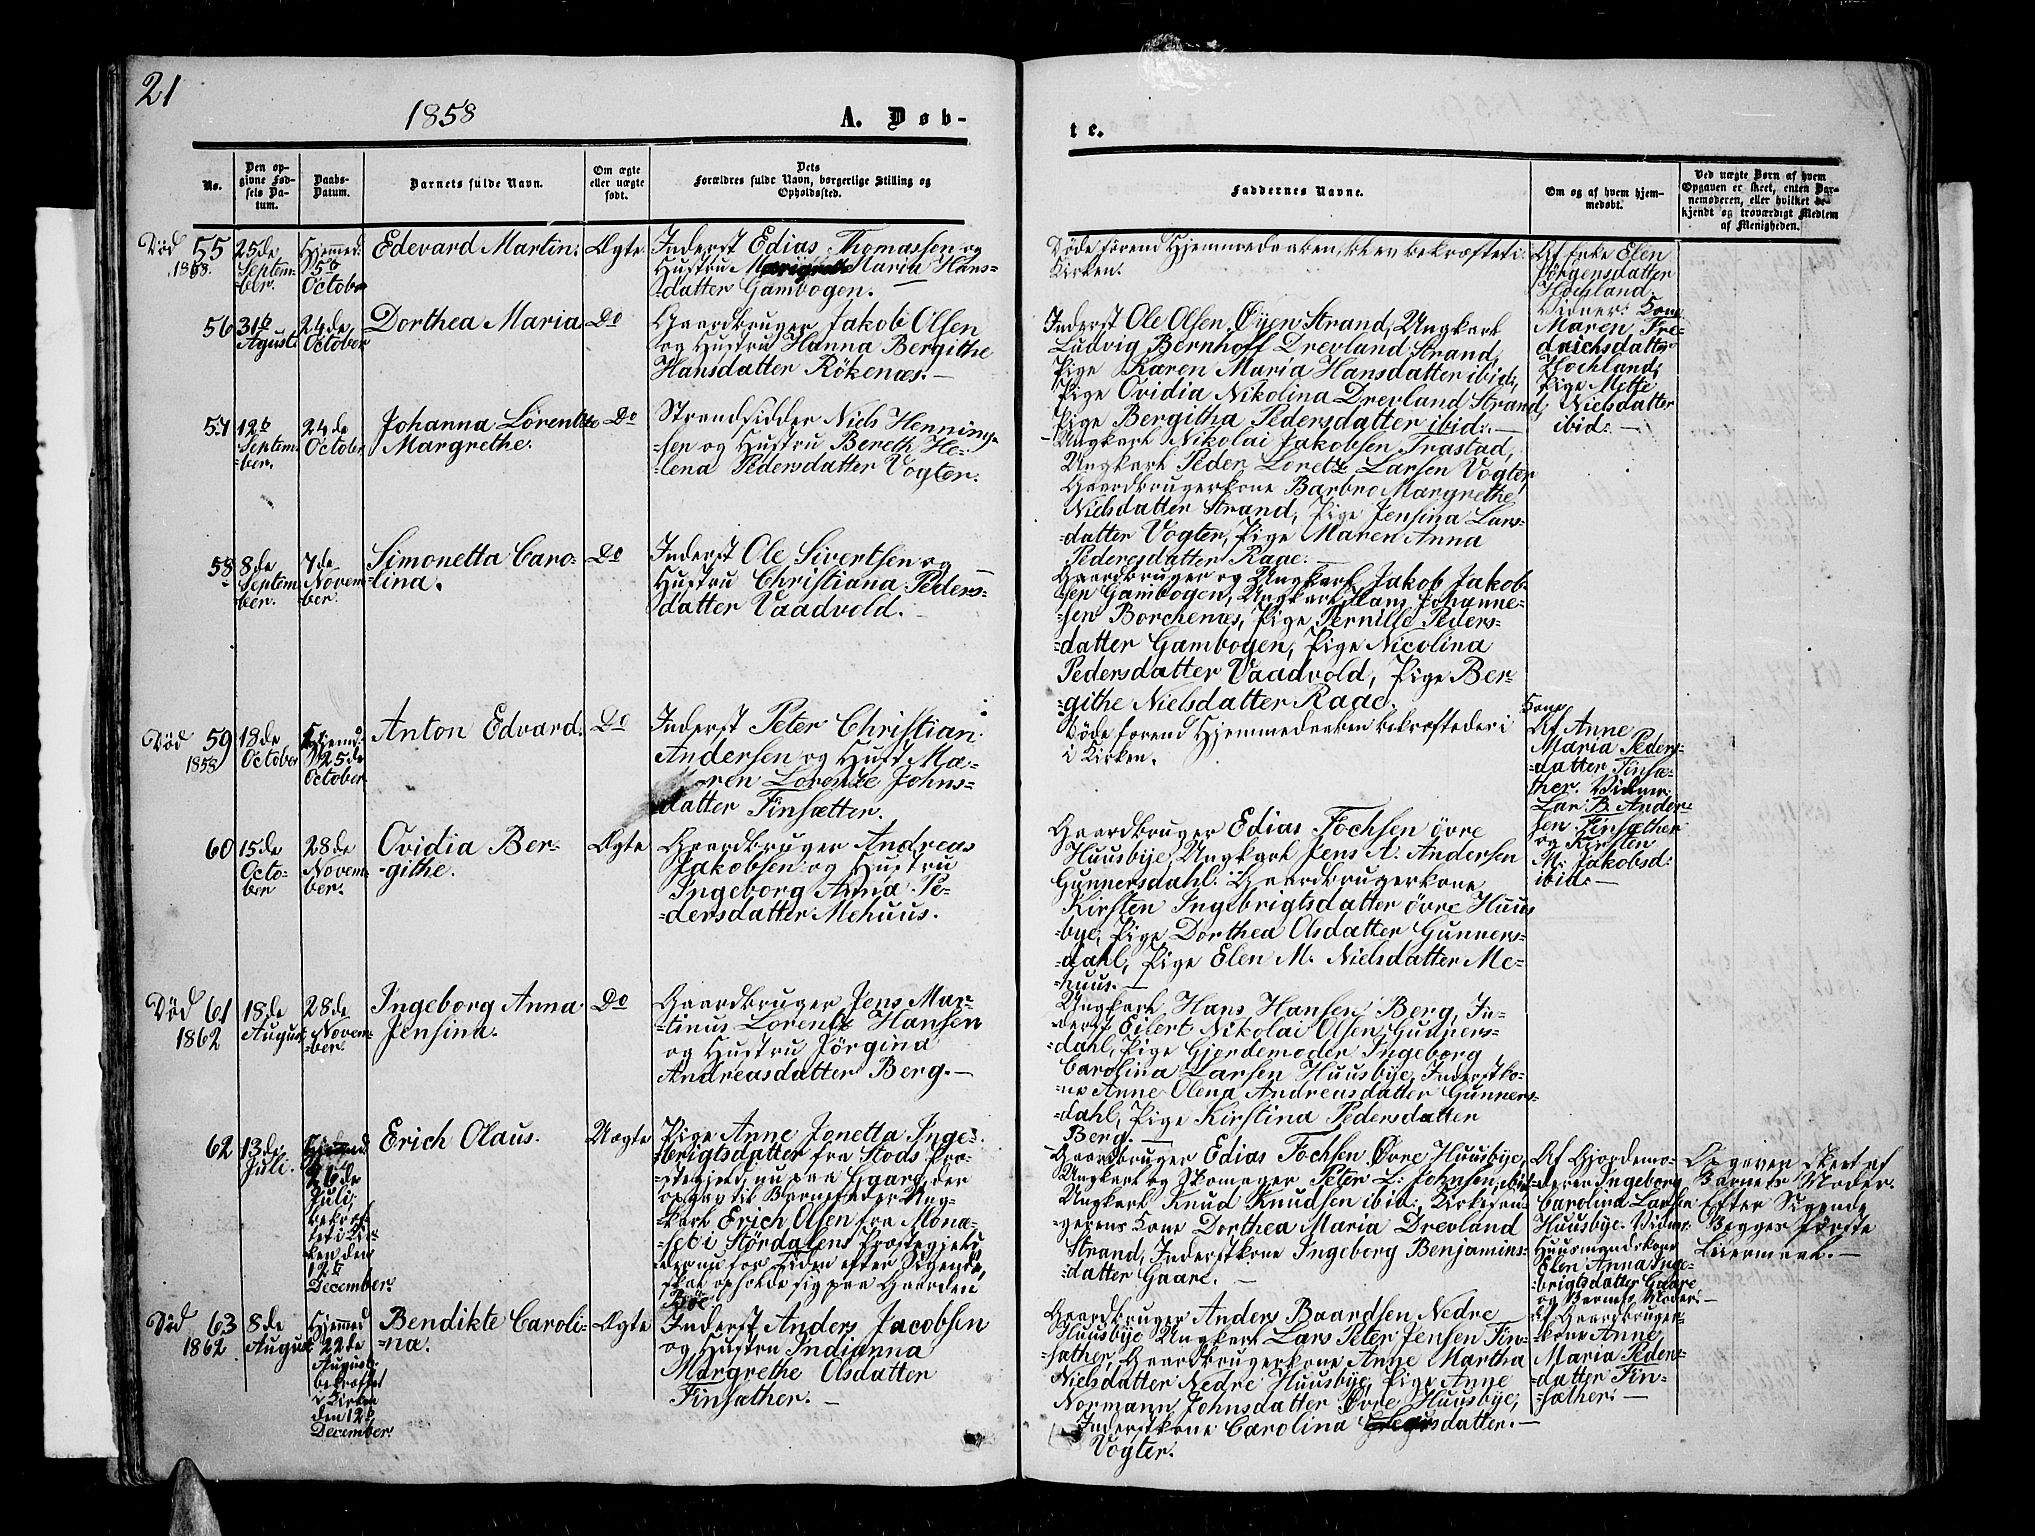 21
1858
A. Døb-
te.
No.
Den op-
givne Fød-
sels Da-
tum.
Daabs-
Datum.
Barnets fulde Navn.
Om ægte
eller uægte
født.
Dets
Forældres fulde Navn, borgerlige Stilling og
Opholdssted.
Faddernes Navne.
Om og af hvem hjem-
medøbt.
Ved uægte Børn af hvem
Opgaven er skeet, enten Bar-
nemoderen, eller hvilket be-
kjendt og troværdigt Medlem
af Menigheden.
Død 55
1858.
25de
Septem-
ber.
Hjemmed.
5te
October
Edevard Martin.
Ægte
Inderst Edias Thomassen og
Hustru Maria Hans-
datter Gambogen.
Døde førend Hjemmedaaben blev bekræftet i
Kirken.
Af Enke Elen
Jörgensdatter
Hochland.
Vidner: Kone
Maren Fre-
drichsdatter
Hochland,
Pige Mette
Nielsdatter
ibid: —
56
31te
Agust
24de
October
Dorthea Maria
Do
Gaardbruger Jakob Olsen
og Hustru Hanna Bergithe
Hansdatter Rökenæs. —
Inderst Ole Olsen Øyen Strand, Ungkarl
Ludvig Bernhoff Drevland Strand,
Pige Karen Maria Hansdatter ibid,
Pige Ovidia Nikolina Drevland Strand,
Pige Bergitha Pedersdatter ibid: —
57
12te
Septem-
-ber.
24de
October
Johanna Lorentze
Margrethe.
Do
Strandsidder Niels Henning-
-sen og Hustru Bereth He-
-lena Pedersdatter Vogter.
Ungkarl Nikolai Jakobsen Trastad,
Ungkarl Peder Loretz Larsen Vogter,
Gaardbrugerkone Barbro Margrethe
Nielsdatter Strand, Pige Jensina Lars-
-datter Vogter, Pige Maren Anna
Pederesdatter Raae. —
58
8de
Septem-
ber.
7de
Novem-
ber.
Simonetta Caro-
lina.
Do
Inderst Ole Sivertsen og
Hustru Christiana Peders-
datter Vaadvold. —
Gaardbruger og Ungkarl Jakob Jakob-
sen Gambogen, Ungkarl Hans Johanne-
-sen Borchenæs, Pige Pernille Peders-
-datter Gambogen, Pige Nicolina
Pedersdatter Vaadvold, Pige Ber-
-githe Nielsdatter Raae.
Død 59
1858
18de
October
Hjemd:
25de
October
Anton Edvard.
Do
Inderst Peter Christian
Andersen og Hust Ma-
ren Lorentze Johns-
datter Finsætter.
Døde førend Hjemmedaaben bekræftedes i
i Kirken.
Kone
Af Anne
Maria Peders-
-datter Finsæ-
ther. Vidner,
Lar: B. Ander-
sen Finsæther
og Kirsten
M. Jakobsd:
ibid: —
60
15de
Octo-
ber
28de
Novem-
ber.
Ovidia Ber-
-githe.
Ægte
Gaardbruger Andreas
Jakobsen og Hustru
Ingeborg Anna Pe-
-dersdatter Mehuus.
Gaardbruger Edias Fochsen övre
Huusbye, Ungkarl Jens A. Andersen
Gunnersdahl. Gaardbrugerkone
Kirsten Ingebrigtsdatter övre Huus
-bye, Pige Dorthea Olsdatter Gunners-
-dahl, Pige Elen M. Nielsdatter Me-
-huus. —
Død 61
1862
18de
August
28de
Novem-
-ber.
Ingeborg Anna
Jensina.
Do
Gaardbruger Jens Mar-
-tinus Lorentz Hansen
og Hustru Jörgina
Andreasdatter Berg. —
Ungkarl Hans Hansen Berg, In-
-derst Eilert Nikolai Olsen Gunners-
-dahl, Pige Gjordemoder Ingeborg
Carolina Larsen Huusbye, Inderstko-
-ne Anne Olena Andreasdatter Gunners-
-dahl, Pige Kirstina Pedersdatter
Berg. —
62
13de
Juli.
Hjemmed
26de
Juli,
bekræf-
tet i Kir-
ken den
12te
December.
Erich Olaus.
Uægte
Pige Anne Jonetta Inge-
brigtsdatter fra Stods Præ-
-stegjeld, nu paa Gaare, der
opgav til Barnefader Ung-
-karl Erich Olsen fra Mona-
-set i Størdalens Præstegjeld
der nu for Tiden efter Sigende,
skal opholde sig paa Gaarden
Böe
Gaardbruger Edias Fochsen Øvre Huusbye,
Ungkarl og Skomager Peter L. Johnsen, ibid
Ungkarl Knud Knudsen ibid, Kirkesan-
-gerens Kone Dorthea Maria Drevland
Strand, Inderstkone Ingeborg Benjamins-
-datter Gaare. —
Af Gjordemo-
-deren Ingeborg
Carolina Larsen
Huusbye. Vidne:
Huusmandskone
Elen Anna Inge-
-brigtsdatter Gaare
og Barnets Moder. —
Opgaven skeet af
Barnets Moder.
Efter Sigende
Begges første
Leiermaal. —
Død 63
1862
8de
August
Hjemmed
22de
August
bekræftet
i Kirken
den 12te
December.
Bendikte Caroli-
-na.
Ægte
Inderst Anders Jacobsen
og Hustru Indianna
Margrethe Olsdatter
Finsæther. —
Gaardbruger Anders Baardsen Nedre
Huusbye, Ungkarl Lars Peter Jensen Fin-
sæther, Gaardbrugerkone Anne Martha
Nielsdatter Nedre Huusbye, Pige Anne
Normann Johnsdatter Øvre Huusbye,
Inderstkone Carolina datter. —
Vogter.
Af Gaardbruger-
-kone Anne
Maria Peders-
-datter Fin-
-sæther. —